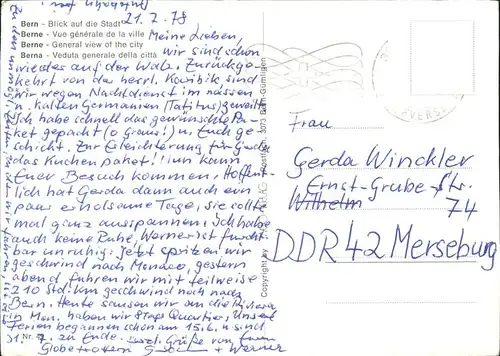 21.7.78
Bern - Blick auf die Stadt
Berne - Vue générale de la ville
Berne - General view of the city
Berna - Veduta generale della città
Meine Lieben,
wir sind schon
wieder auf der Walz. Zurückge-
kehrt von der herrl. Karibik, sind
wir wegen Nachdienst im nassen
u. kalten Germanien (Tatitus) geweilt
Ich habe schnell das gewünschte Pa-
ket gepackt (o Graus!) u. Euch ge-
schickt. Zur Erleichterung für Gerda
das Kuchenpaket! Nun kann
Euer Besuch kommen, Hoffent-
lich hat Gerda dann auch ein
paar erholsame Tage, sie sollte
mal ganz ausspannen; ich habe
auch keine Ruhe, Werner ist furcht-
bar unruhig: Jetzt spritzen wir
geschwind nach Monaco, gestern
abend fuhren wir mit teilweise
210 Std.km geschwind noch nach
Bern. Heute sausen wir an die Riviera
in Mon. haben wir Quartier, Unsere
Ferien begannen schon am 15.6. u. sind
31. 7. zu Ende. Grüße von Euren
Globetrottern + Werner
Copyright by
3073 Bern-Gümligen
Frau
Gerda Winckler
Ernst-Grube-Str.
Wilhelm 74
DDR 42 Merseburg